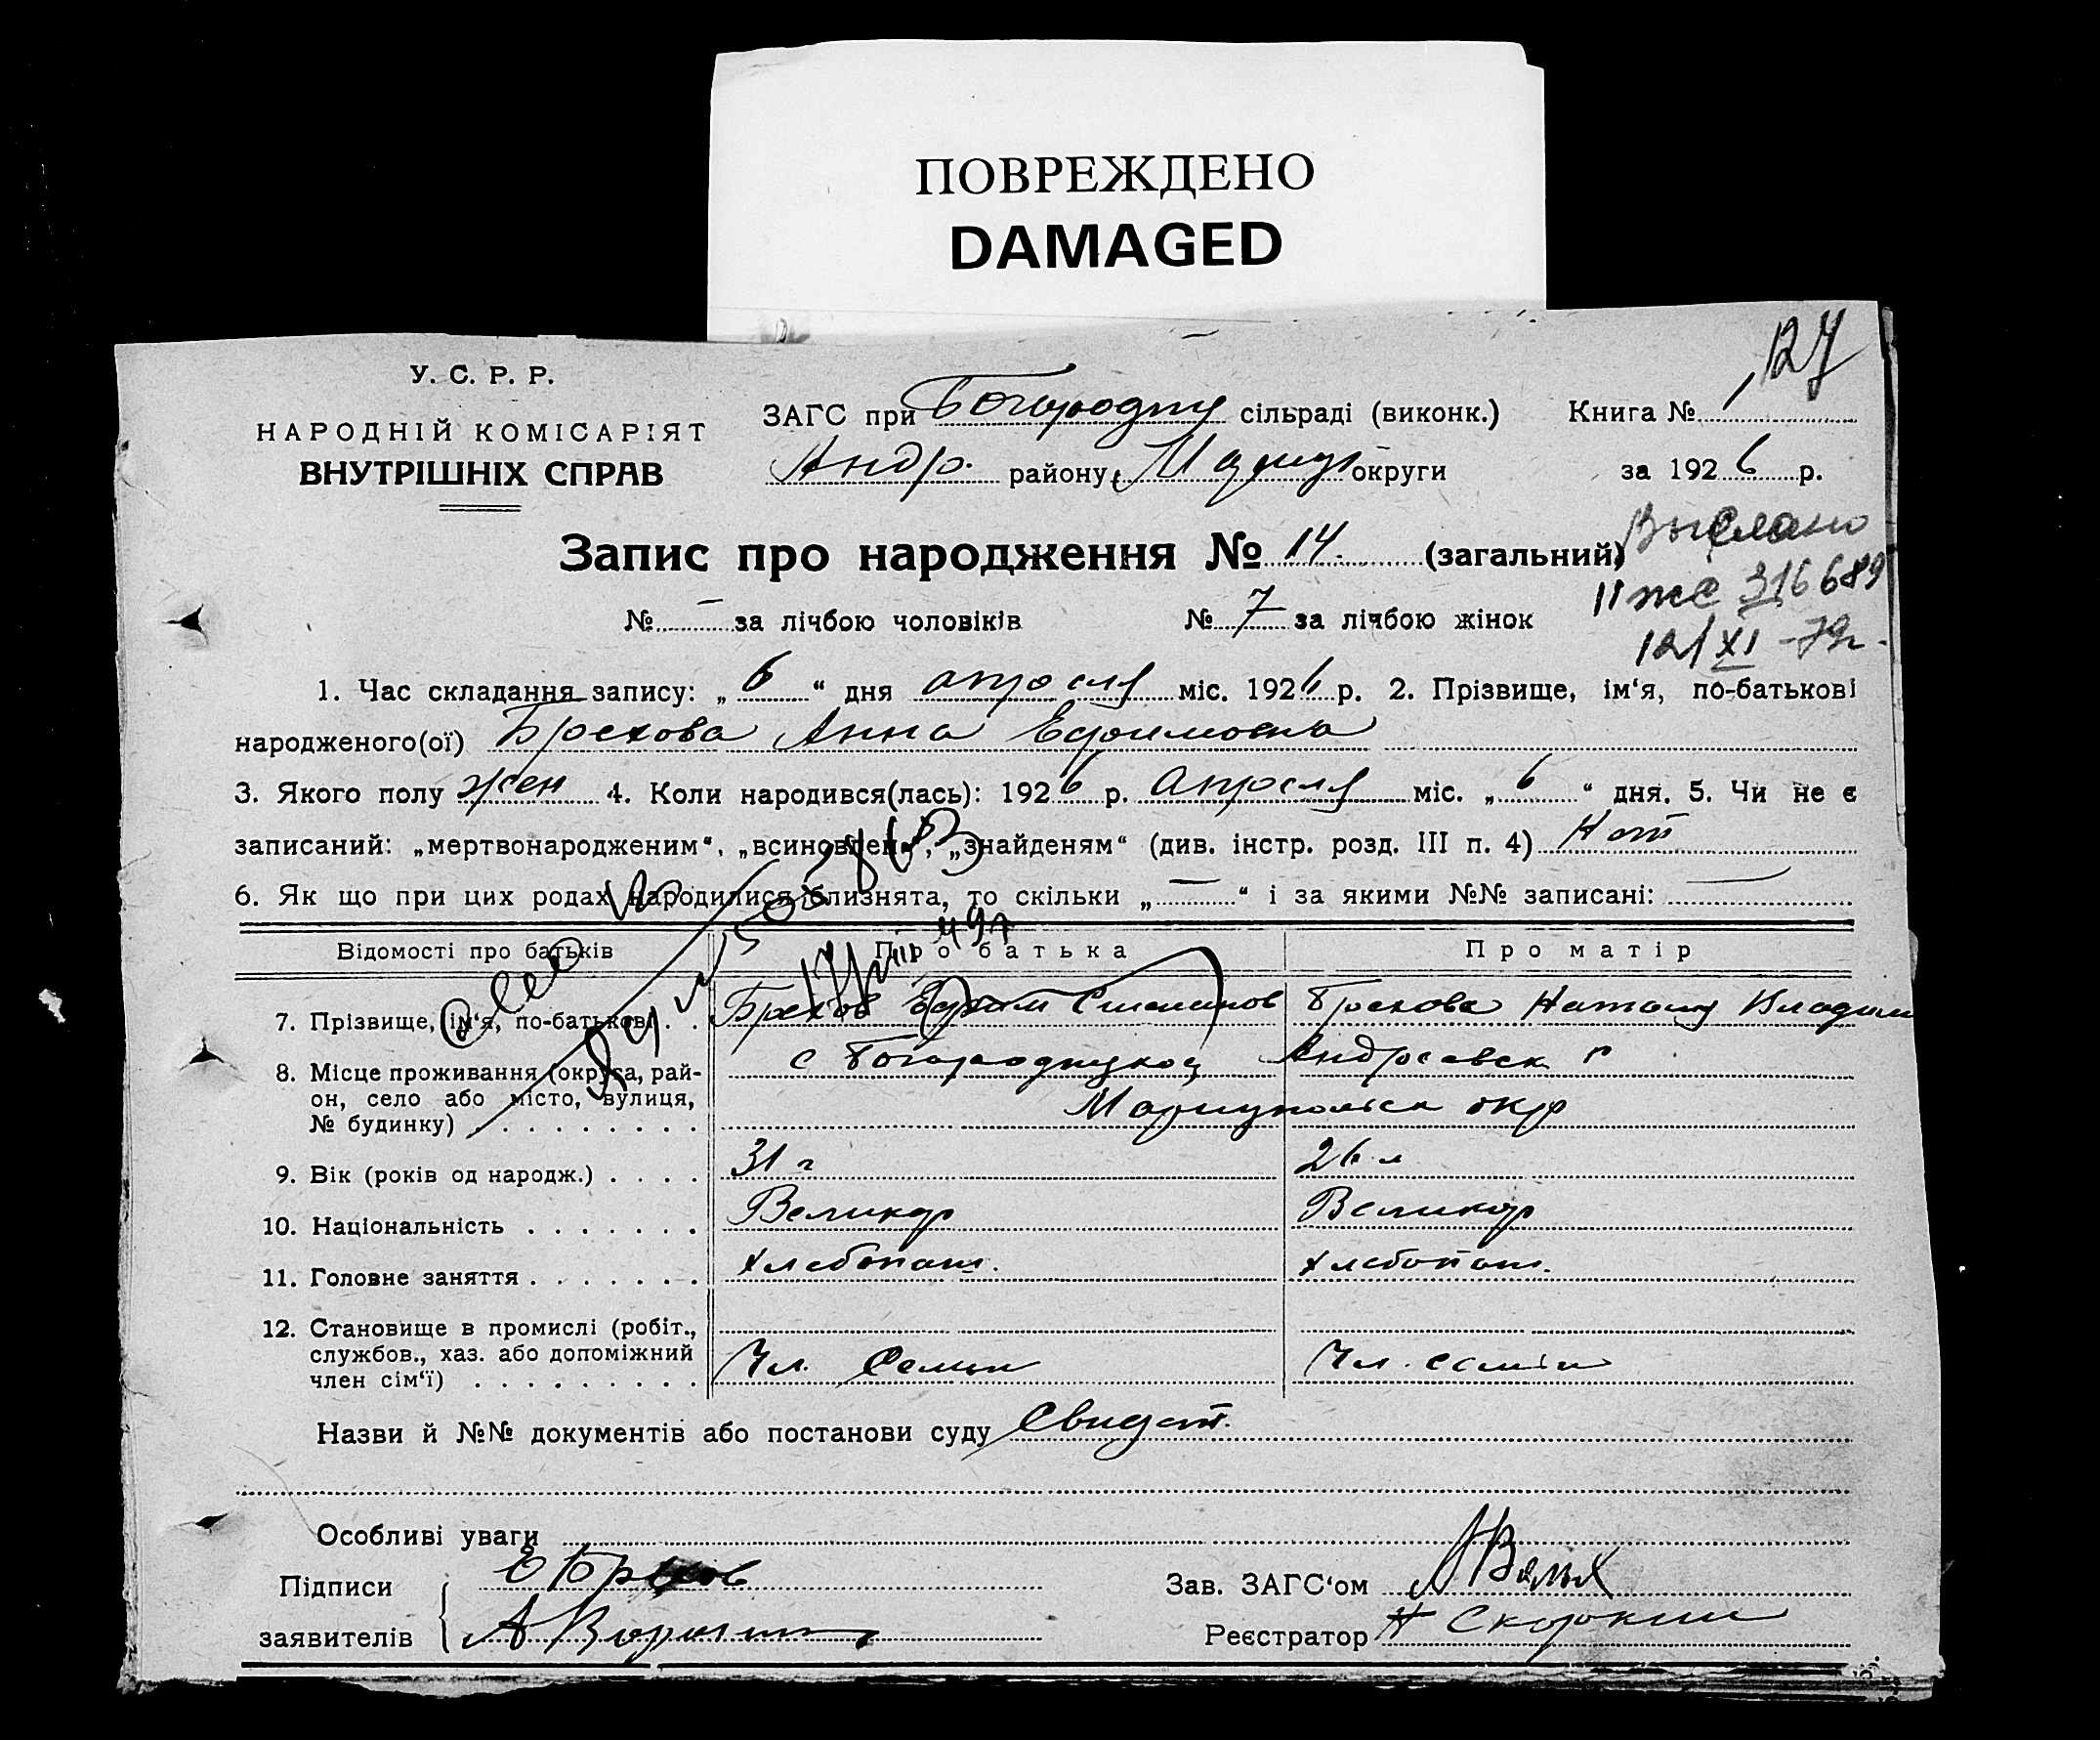 ПОВРЕЖДЕНО
DAMAGED
127
У. С. Р. Р.
НАРОДНІЙ КОМІСАРІЯТ
ВНУТРІШНІХ СПРАВ
ЗАГС при сільраді (виконк.) Книга №
Андр. району округи за 1926 р.
Запис про народження № 14. (загальний)
Выслано
II 316689
12/XI - 79г.
№ — за лічбою чоловіків № 7 за лічбою жінок
1. Час складання запису: „ 6 “ дня апреля міс. 1926 р. 2. Прізвище, ім‘я, по-батькові
народженого(ої) Брехова Анна Ефимовна
3. Якого полу жен 4. Коли народився(лась): 1926 р. Апреля міс. „ 6 “ дня. 5. Чи не є
записаний: „мертвонародженим“, „всиновлен.“, „знайденям“ (див. інстр. розд. III п. 4) Нет
6. Як що при цих родах народилися близнята, то скільки „ — “ і за якими №№ записані: —
Відомості про батьків Про батька Про матір
7. Прізвище, ім‘я, по-батькові . . Брехов Ефим Степанов Брехова Владим
8. Місце проживання (округа, рай- с Андреевск р
он, село або місто, вулиця, Мариупольск окр
№ будинку) . . . . . . . . .
9. Вік (років од народж.) . . . . 31 г 26 л
10. Національність . . . . . . . Великор Великор
11. Головне заняття . . . . . . . Хлебопаш. Хлебопаш.
12. Становище в промислі (робіт.,
службов., хаз. або допоміжний Чл. Семьи Чл. семьи
член сім‘ї) . . . . . . . . .
Назви й №№ документів або постанови суду Свидет.
Особливі уваги
Підписи Е Брехов Зав. ЗАГС‘ом
заявителів А Реєстратор Н Скоркин